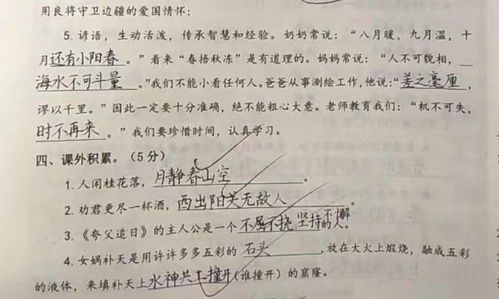 用良将守卫边疆的爱国情怀；
5. 谚语，生动活泼，传承智慧和经验。奶奶常说：“八月暖，九月温，十
月还有小阳春。”看来“春捂秋冻”是有道理的。妈妈常说：“人不可貌相，
海水不可斗量。”我们不能小看任何人。爸爸从事测绘工作，他说：“差之毫厘，
谬以千里。”因此一定要十分准确，绝不能粗心大意。老师教育我们：“机不可失，
时不再来。”我们要珍惜时间，认真学习。
四、课外积累。（5分）
1. 人闲桂花落，月静春山空。
2. 劝君更尽一杯酒，西出阳关无故人。
3.《夸父追日》的主人公是一个不屈不挠，坚持不懈的人。
4. 女娲补天是用许许多多五彩的石头，放在大火上煅烧，融成五彩
的液体，来填补天上水神共工撞开（谁撞开）的窟窿。